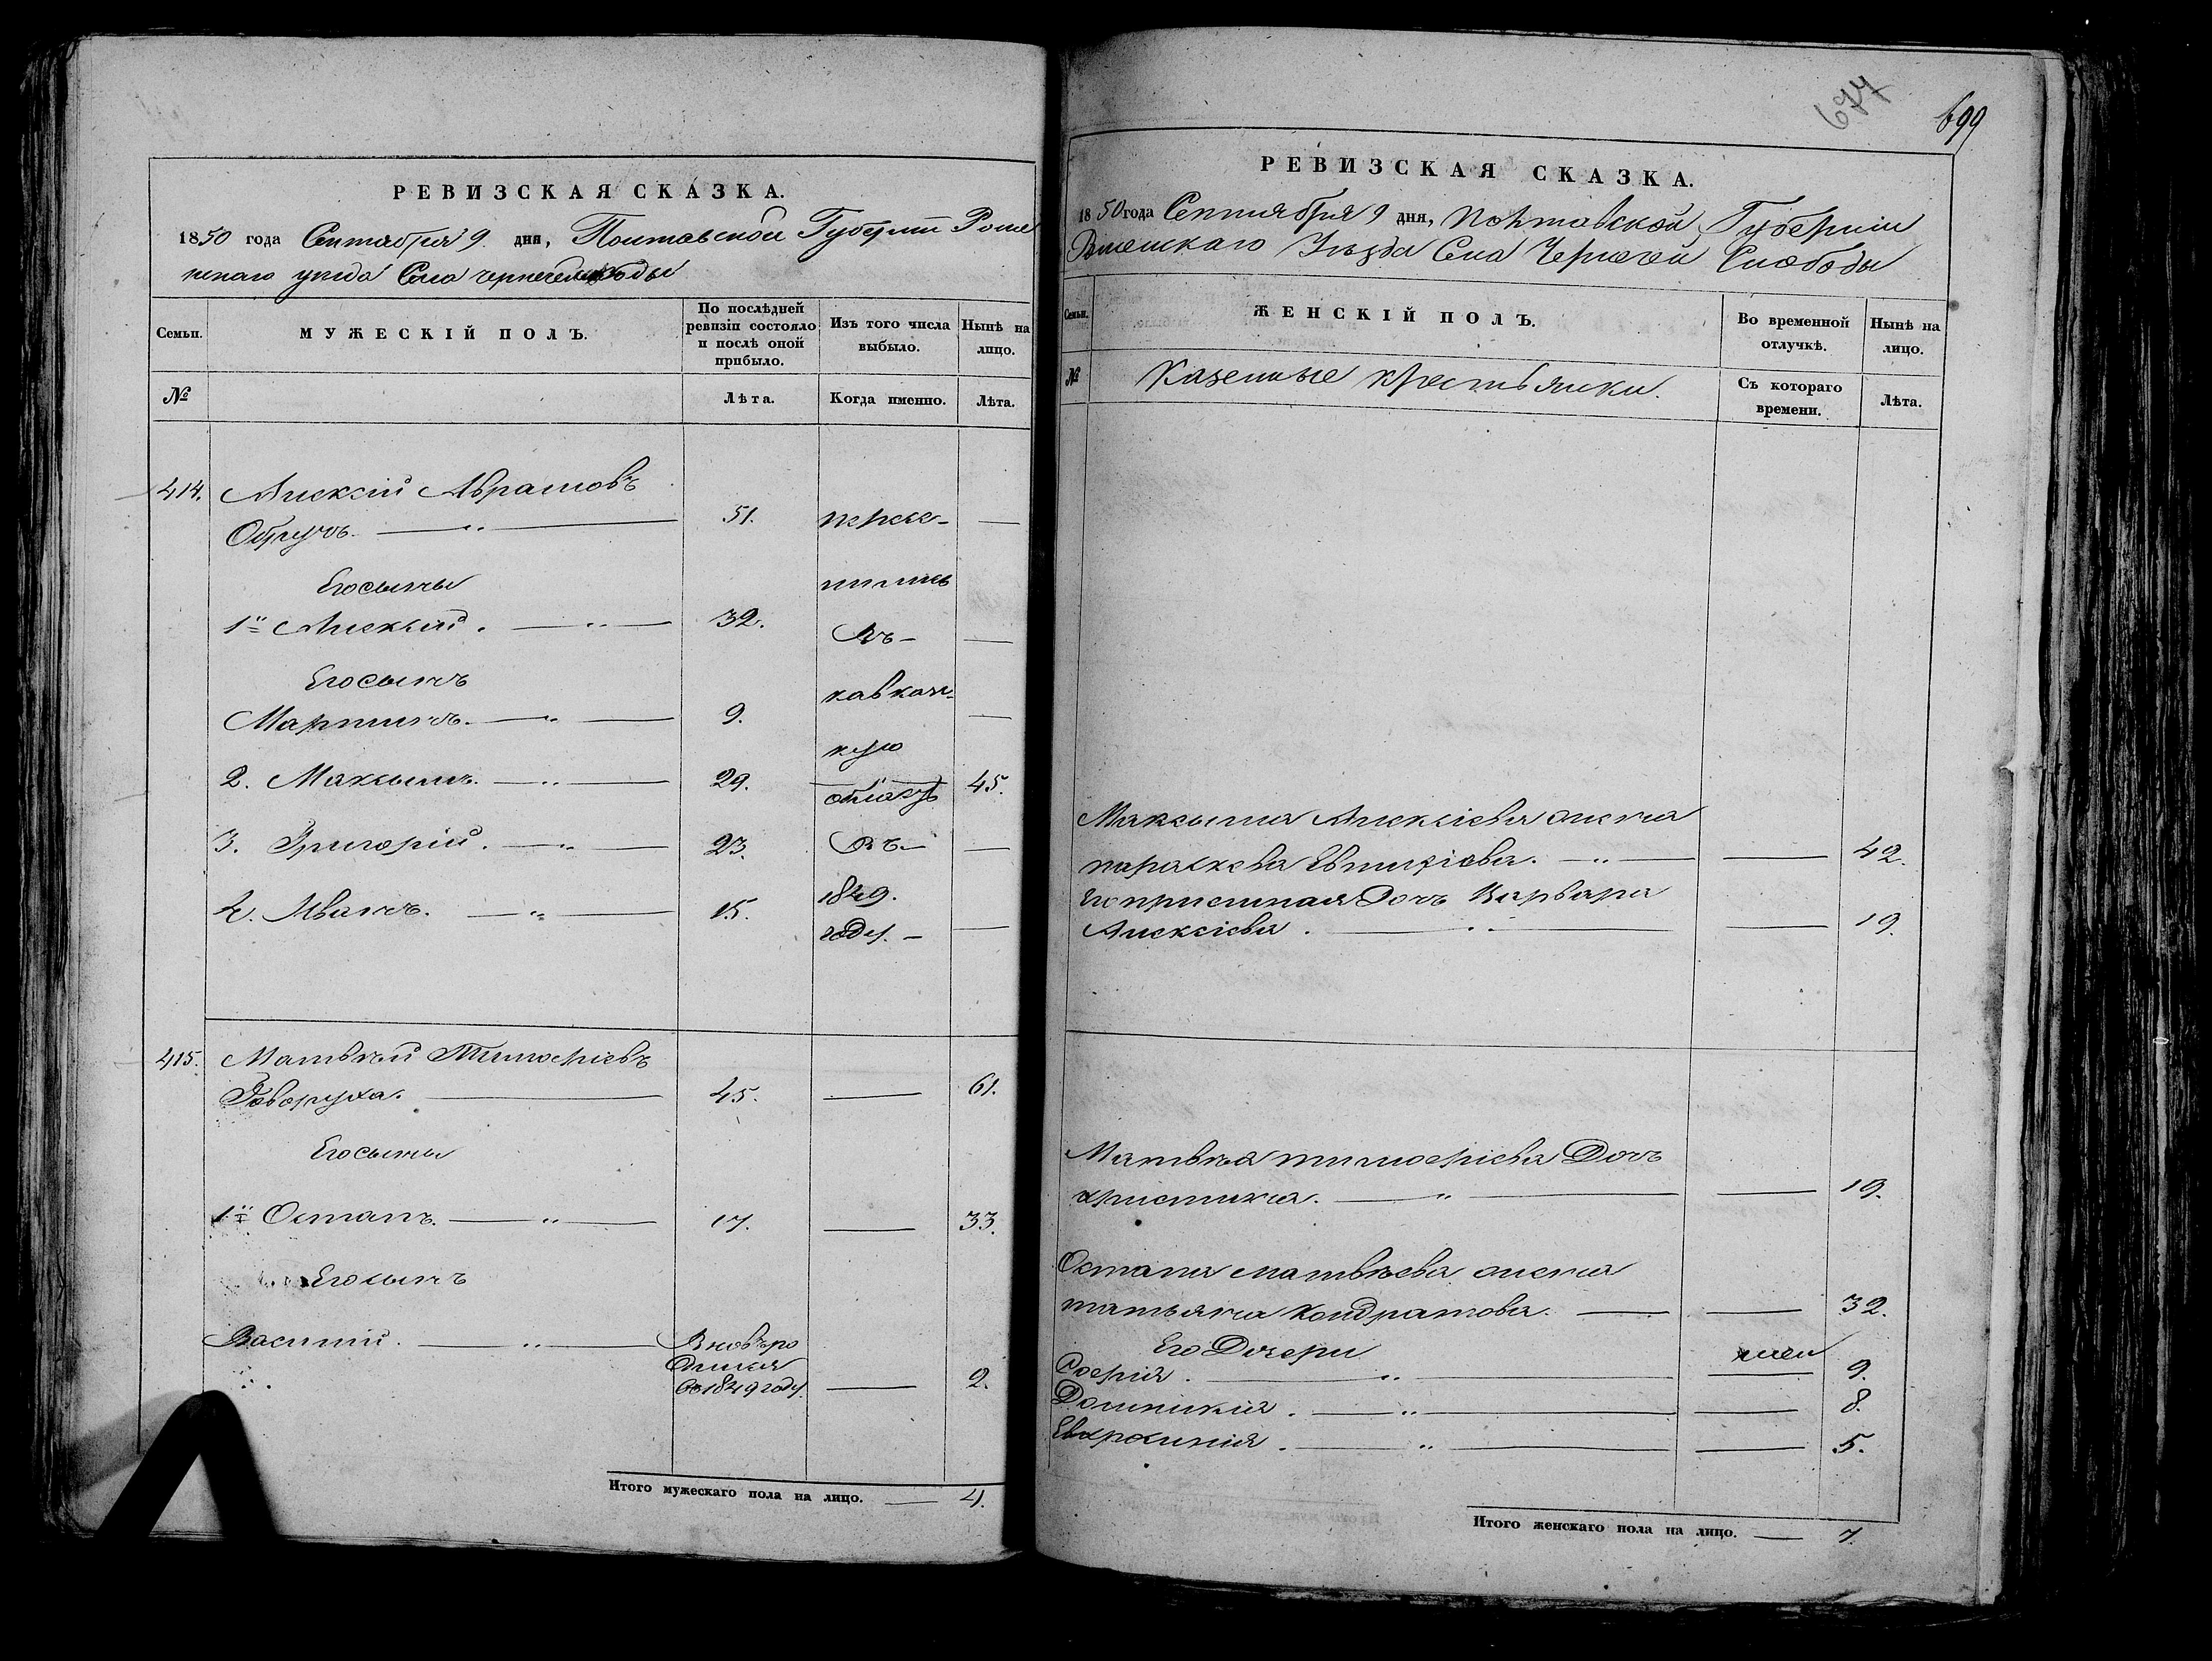 РЕВИЗСКАЯ СКАЗКА.
1850 года Септября 9 дня, Полтавской Губерніи Роме
нскаго уезда Села чернечеслободы
Семьи. МУЖЕСКІЙ ПОЛЪ. По послѣдней ревизіи состояло и послѣ оной прибыло. Изъ того числа выбыло. Нынѣ на лицо.
№ Лѣта. Когда именно. Лѣта.
414. Алексій Абрамовъ
Обручъ. 51. пересе-
Его сыны лились
1й Алексій. 32. Въ
Его сынъ кавказ-
Мартинъ. 9. кую
2. Максымъ. 29. область 45.
3. Григорій. 23. Въ
4. Иванъ. 15. 1849. году.
415. Матвѣй Тимофіевъ
Говоруха. 45. 61.
Его сыны
1й Остапъ. 17. 33.
Его сынъ
Василій. Вновъ ро
дился
въ 1849 году. 2.
Итого мужескаго пола на лицо. 4.
677
699
РЕВИЗСКАЯ СКАЗКА.
1850 года Септиября 9 дня, Полтавской Губерніи
Роменскаго Уѣзда Села Чернечей Слободы
Семьи. ЖЕНСКІЙ ПОЛЪ. Во временной отлучкѣ. Нынѣ на лицо.
№ Казенные крестьянки. Съ котораго времени. Лѣта.
Максыма Алексіева жена
параскева Евтихіева. 42.
Его приемная Дочь Варвара
Алексіева. 19.
Матвѣя тимофіева Дочь
христина. 19.
Остапа матвѣева жена
татьяна Кондратова. 32.
Его Дочери
Софія. 9.
Домникія. 8.
Евфросинія. 5.
Итого женскаго пола на лицо. 7.